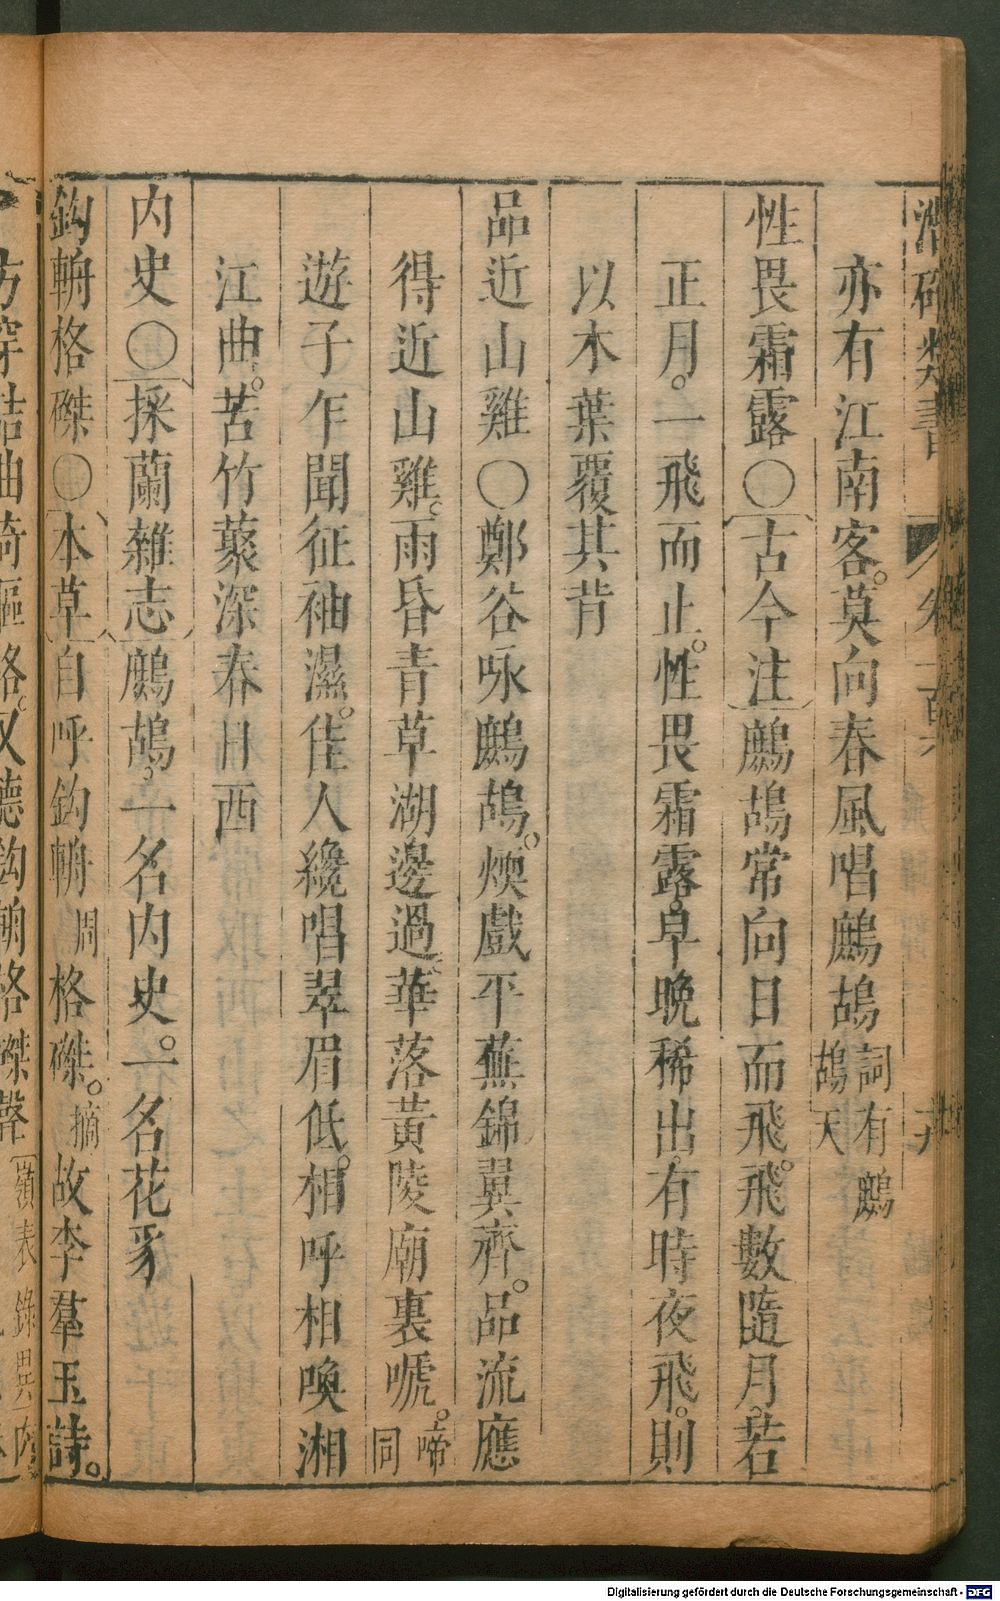 潛確類書
亦有江南客。莫向春風唱鷓鴣詞有鷓鴣天
性畏霜露〇古今注鷓鴣常向日而飛。飛數隨月。若
正月。一飛而止。性畏霜露。早晚稀出。有時夜飛。則
以木葉覆其背
品近山雞〇鄭谷咏鷓鴣。煗戲平蕪錦翼齊。品流應
得近山雞。雨昏青草湖邊過。華落黃陵廟裏嗁。啼同
遊子乍聞征袖濕。佳人纔唱翠眉低。相呼相喚湘
江曲。苦竹藂深春日西
内史〇採蘭雜志鷓鴣。一名内史。一名花豸
鈎輈格磔〇本草自呼鈎輈周格磔。摘故李羣玉詩。
方穿詰曲崎嶇路。又聽鈎輈格磔聲嶺表錄異
Digitalisierung gefördert durch die Deutsche Forschungsgemeinschaft - DFG